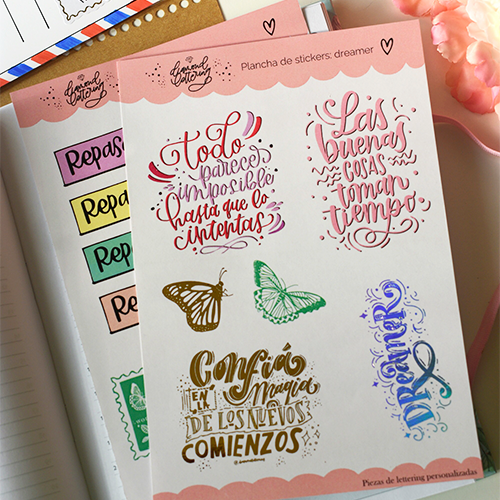 diamond
lettering
Plancha de stickers: dreamer
diamond
lettering
Todo
parece
imposible
hasta que lo
intentas
Las
buenas
cosas
toman
tiempo
Repas
Repa
Repa
Re
Confiá
EN LA
magia
DE LOS NUEVOS
COMIENZOS
DREAMER
Piezas de lettering personalizadas